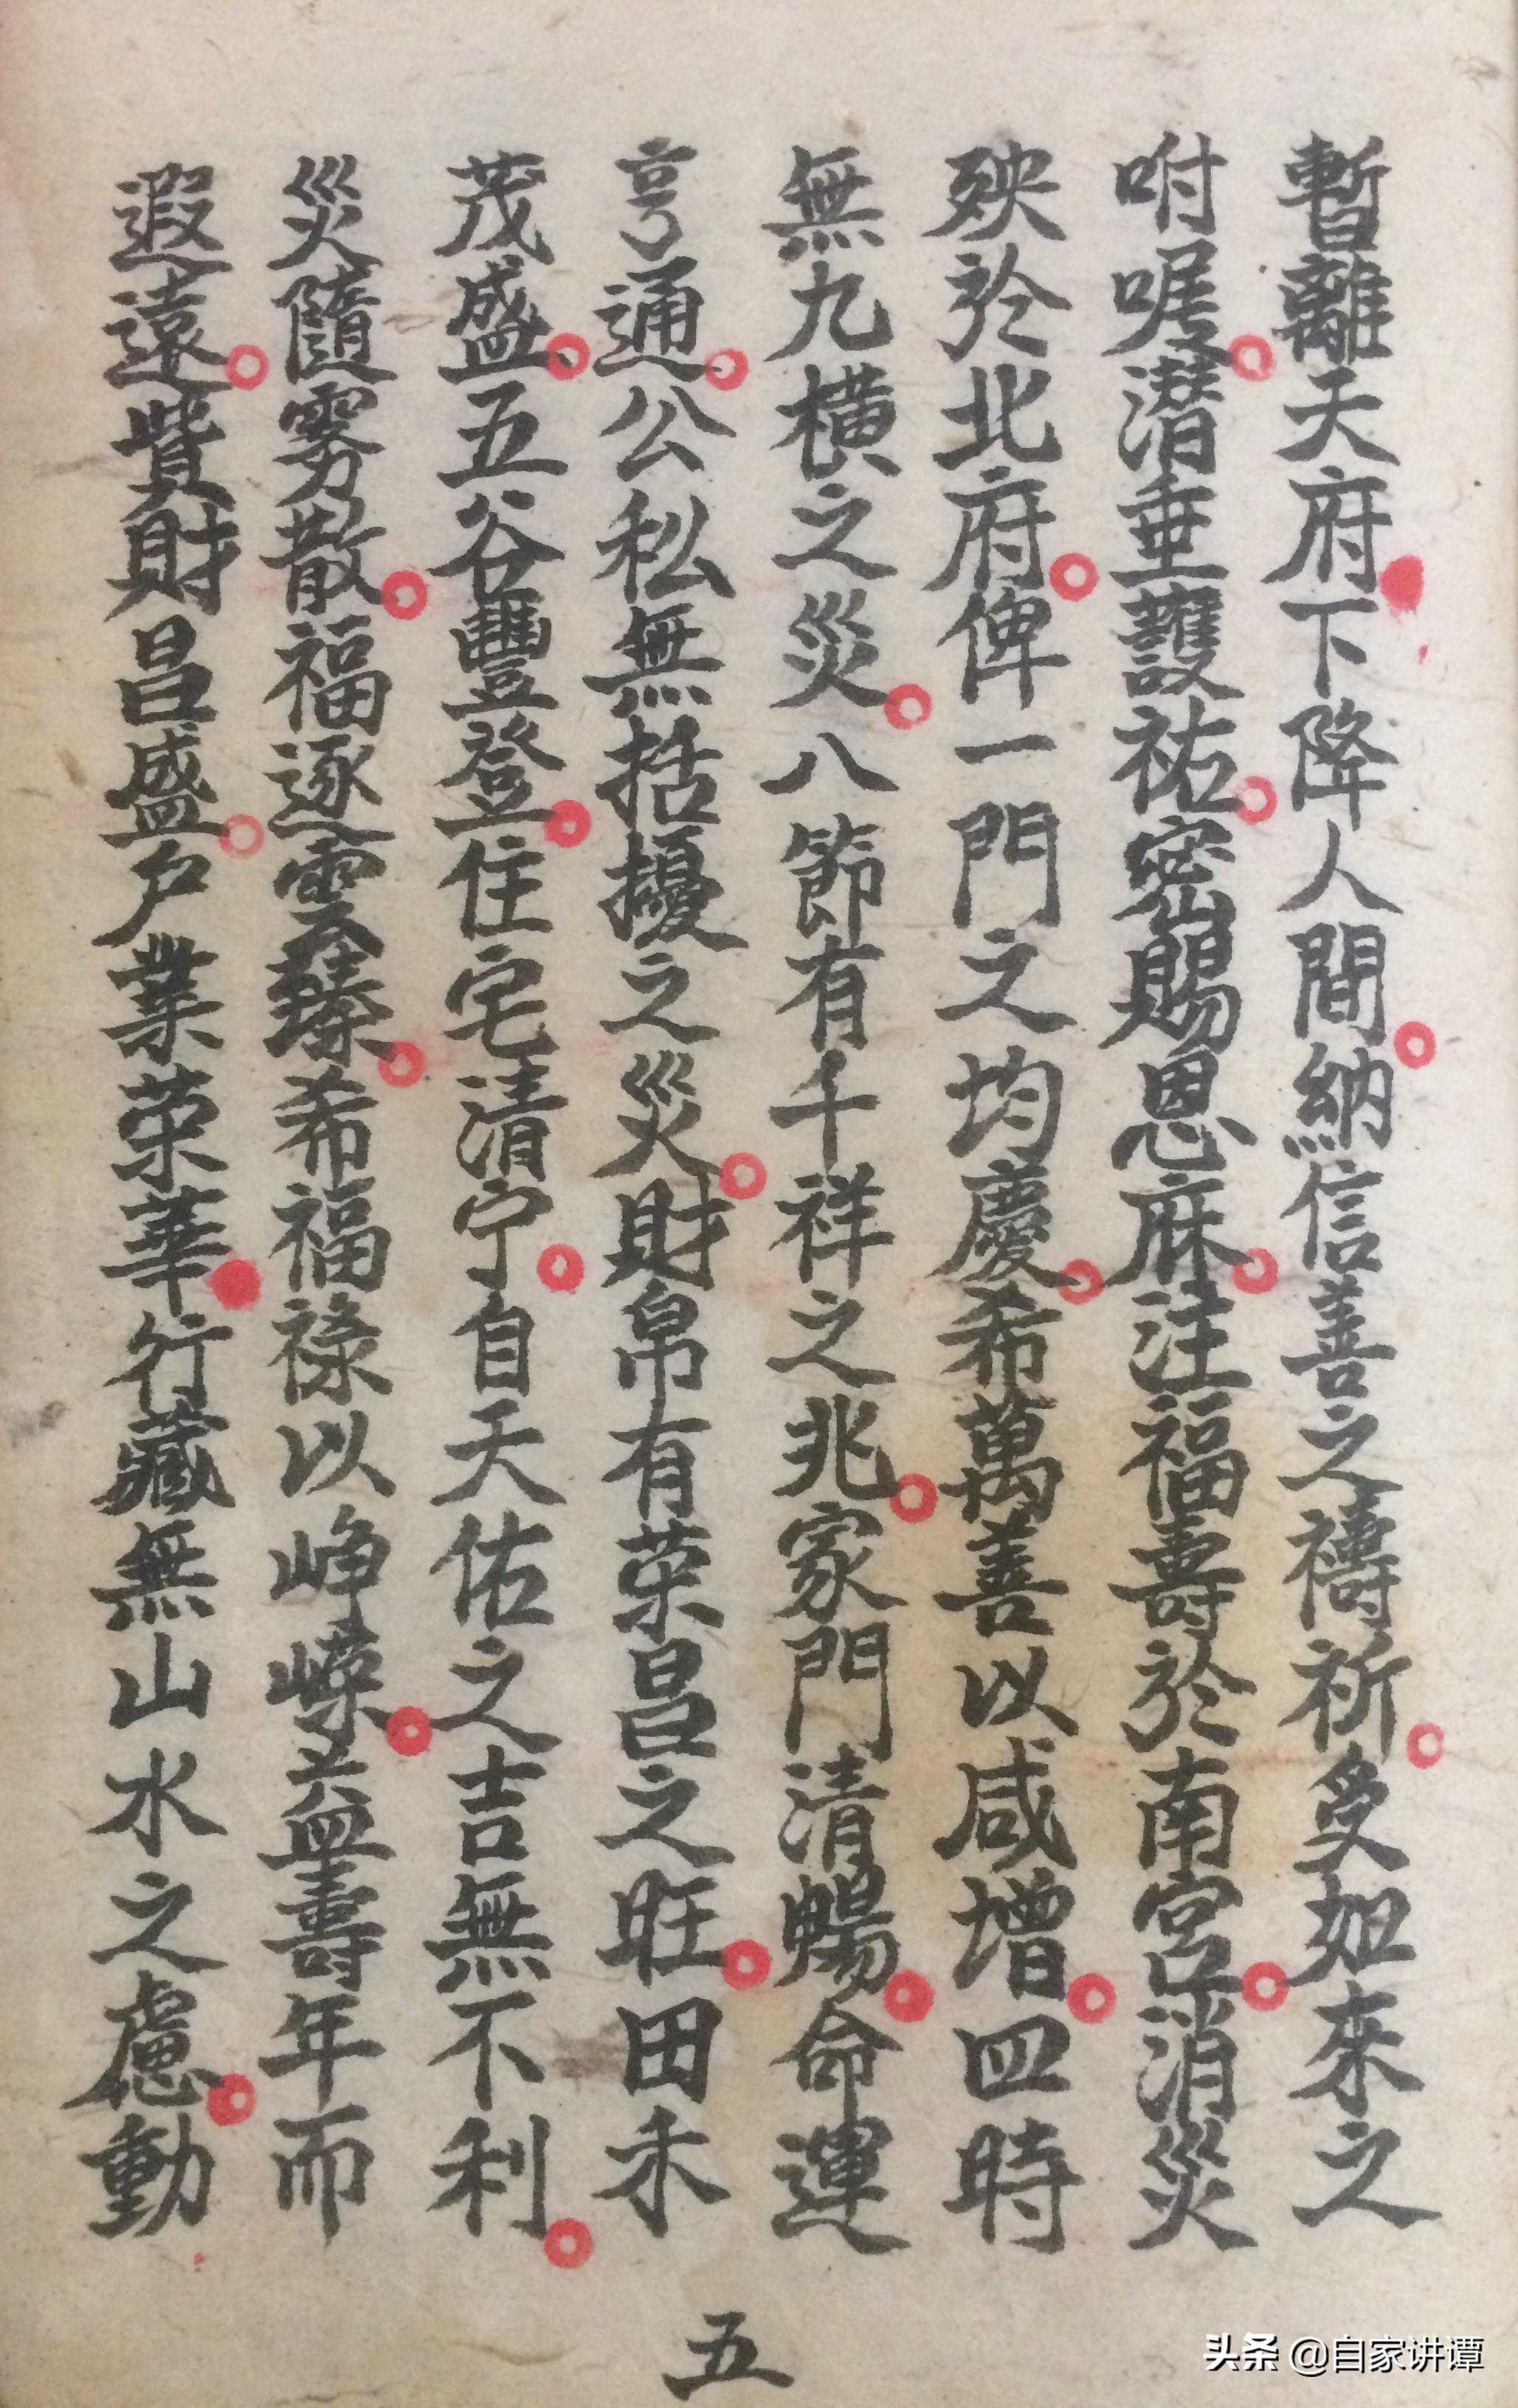 暫離天府下降人間納信善之禱祈受如來之
咐囑潛垂護祐密賜恩庥注福壽於南宮消災
殃於北府俾一門之均慶希萬善以咸增四時
無九橫之災八節有千祥之兆家門清暢命運
亨通公私無括擾之災財帛有荣昌之旺田禾
茂盛五谷豐登住宅清宁自天佑之吉無不利
災隨雾散福逐雲臻希福祿以峥嵘益壽年而
遐遠貲財昌盛户業荣華行藏無山水之慮動
五
头条 @自家讲谭